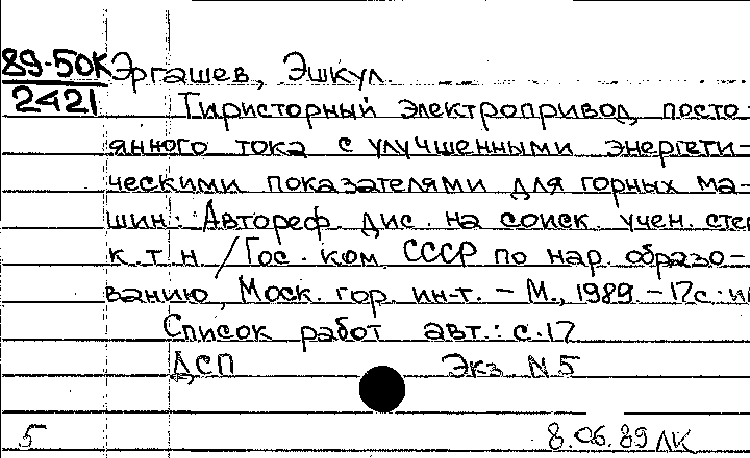 89-50К Эргашев, Эшкул
2421 Тиристорный электропривод посто-
янного тока с улучшенными энергети-
ческими показателями для горных ма-
шин: Автореф. дис. на соиск. учен. степ
к.т.н / Гос. ком. СССР по нар. образо-
ванию, Моск. гор. ин-т. - М., 1989. - 17с. ил
Список работ авт.: с.17
ДСП Экз N5
5 8.06.89 ЛК